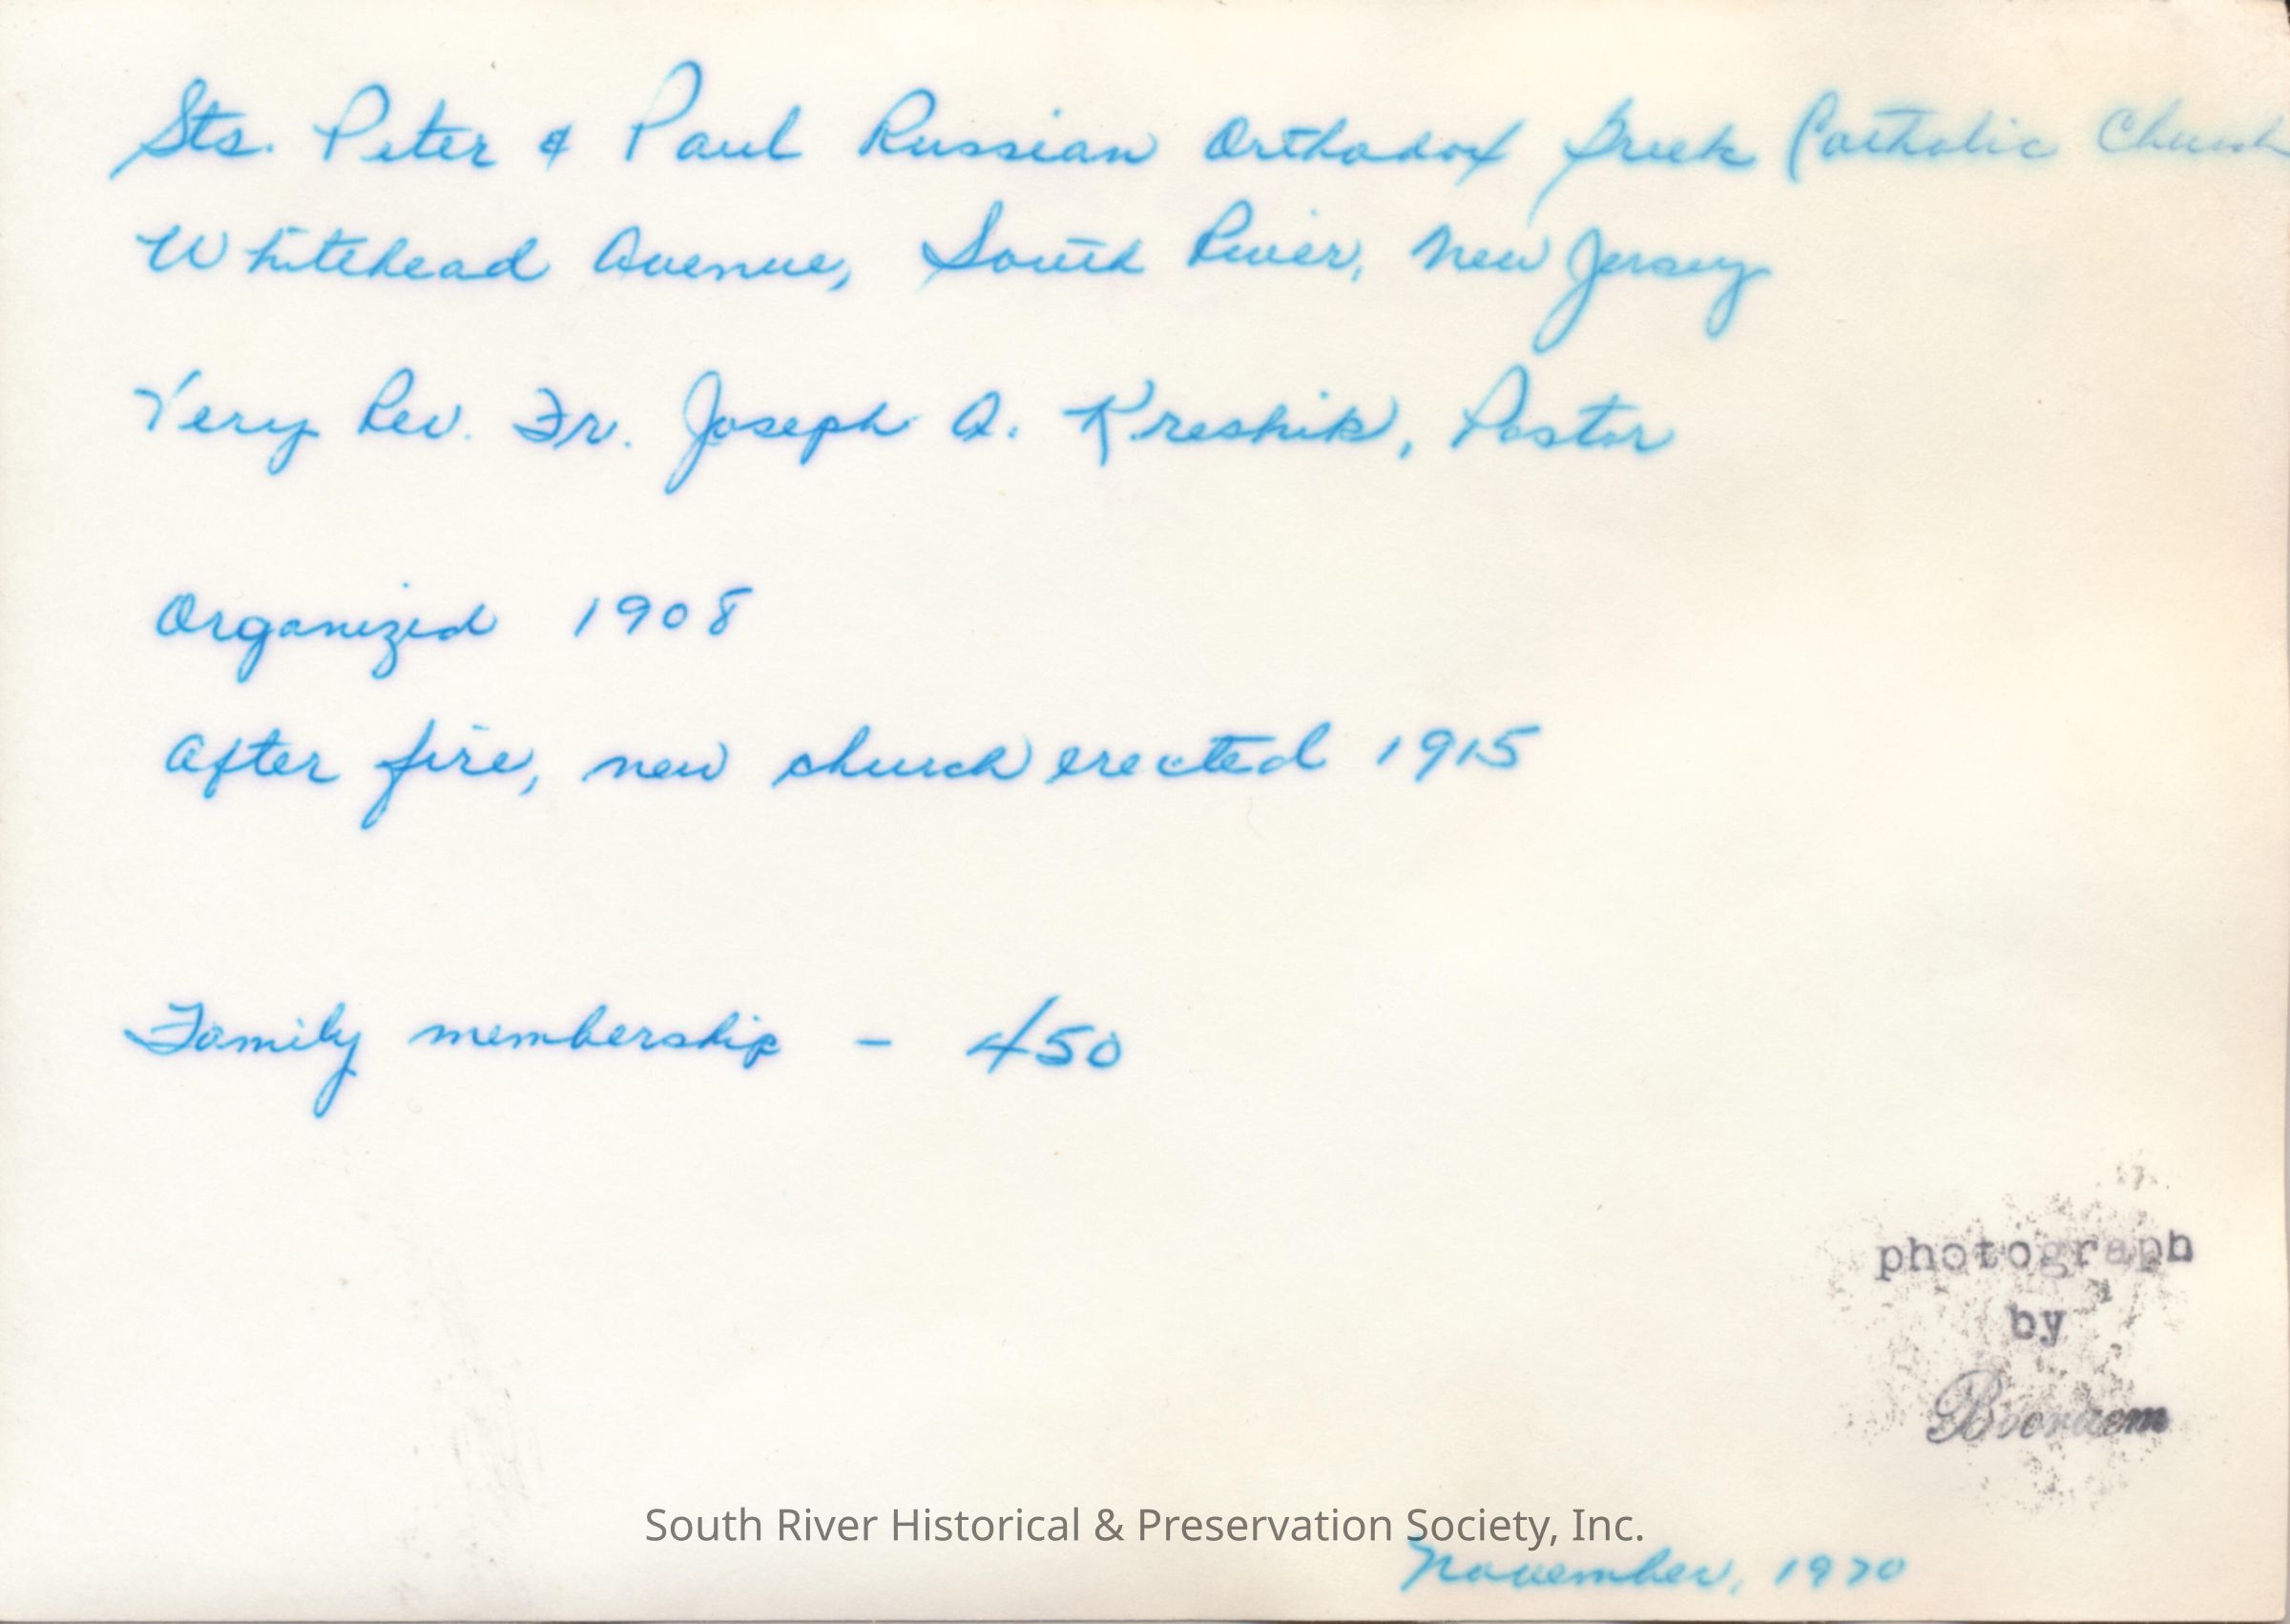 Sts. Peter & Paul Russian Orthodox Greek Catholic Church
Whitehead Avenue, South River, New Jersey
Very Rev. Fr. Joseph A. Kreshik, Pastor
Organized 1908
After fire, new church erected 1915
Family membership - 450
photograph
by
South River Historical & Preservation Society, Inc.
November, 1970